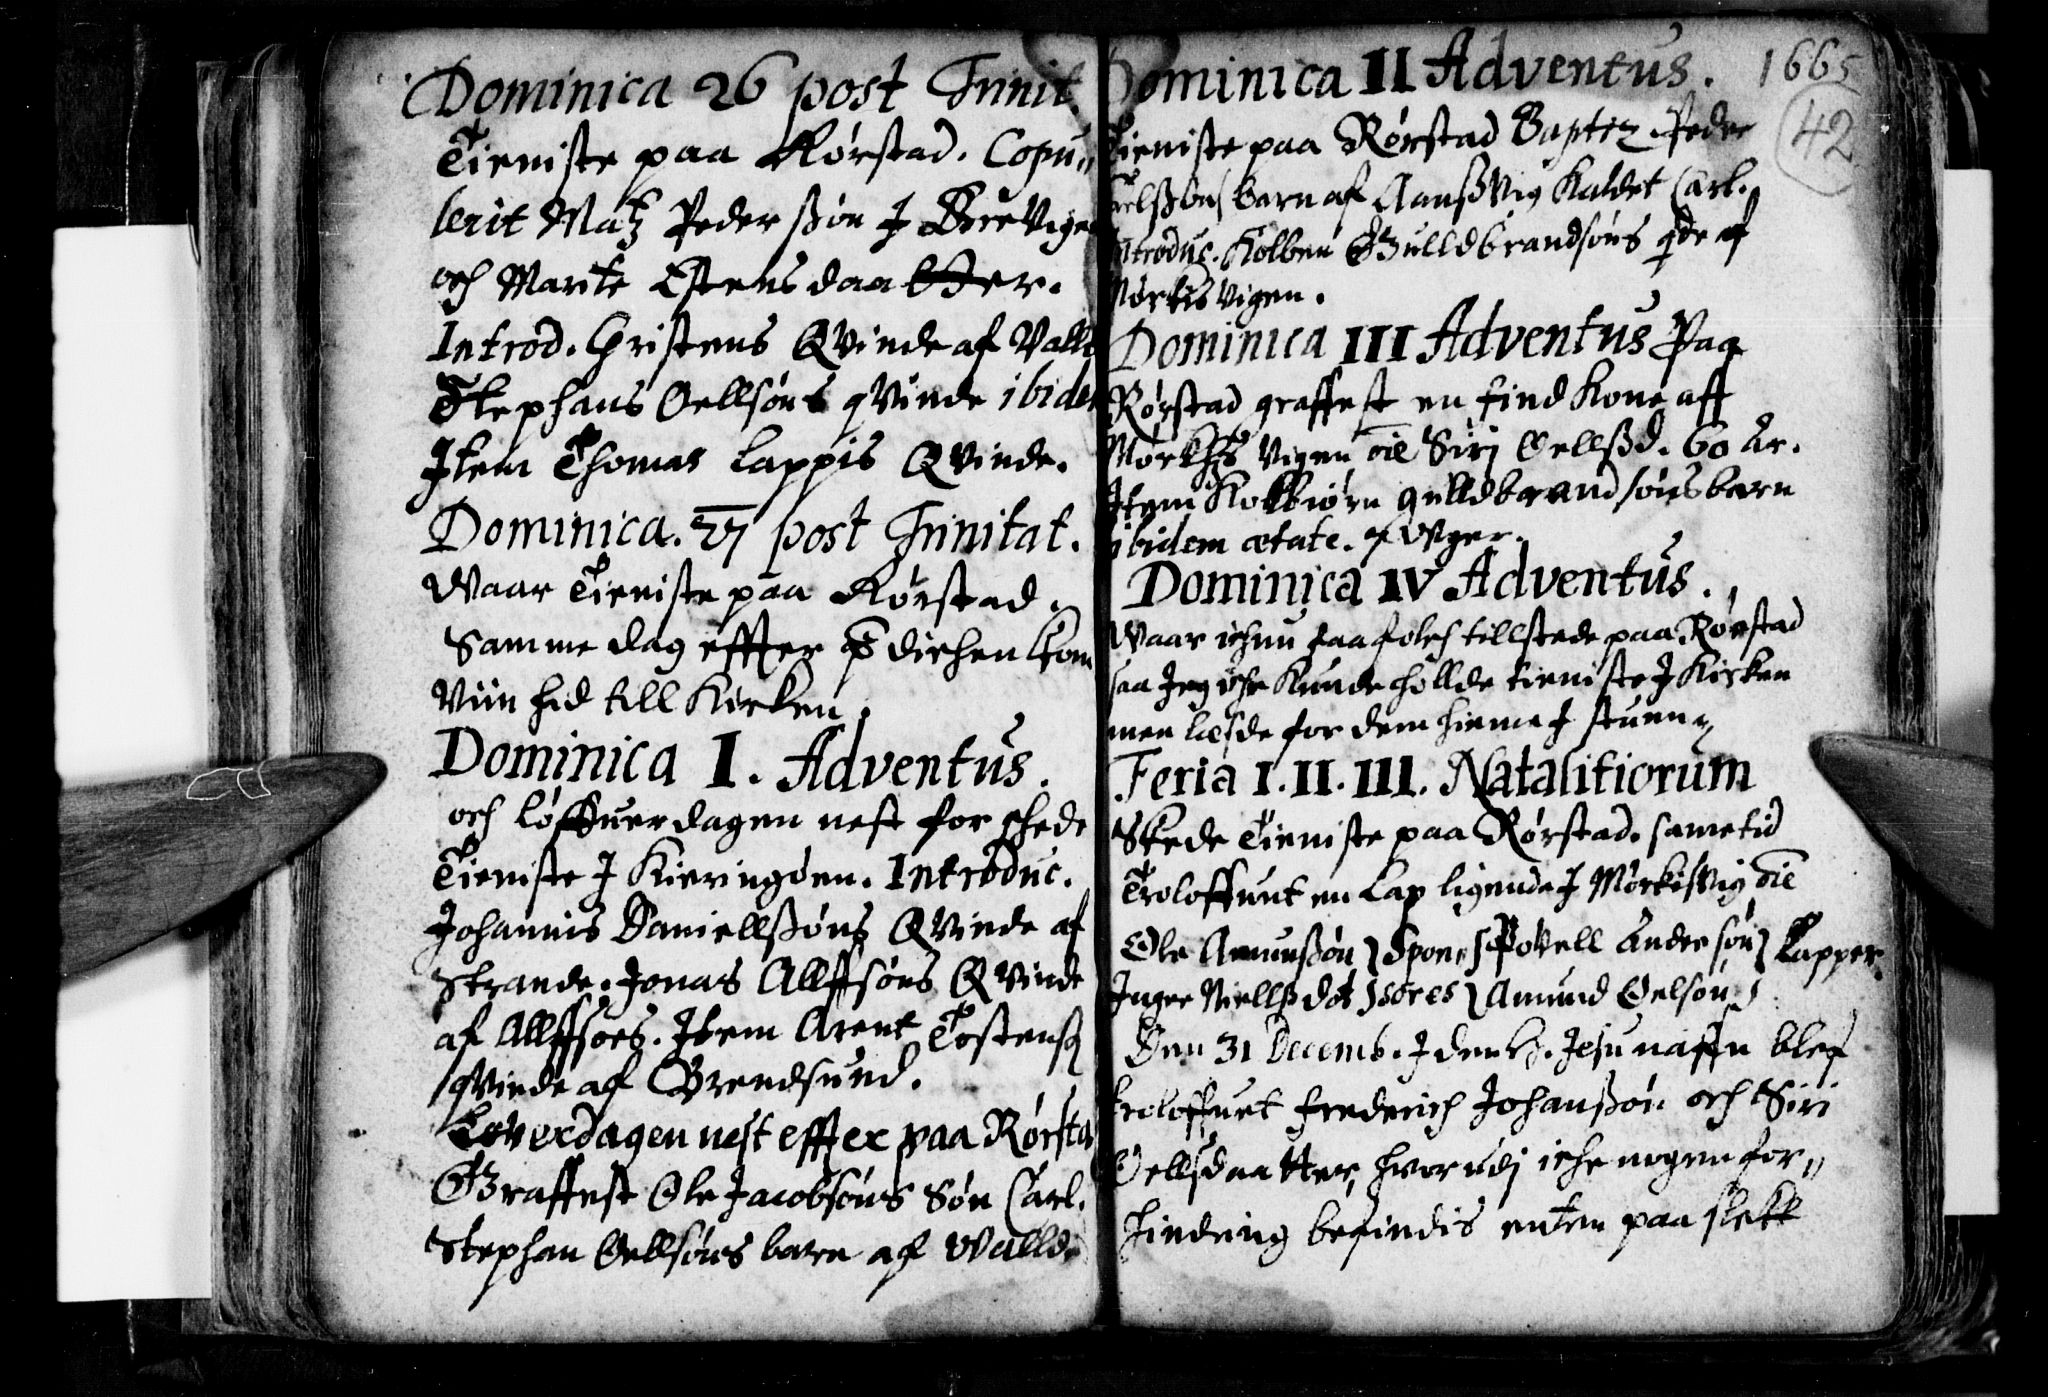 Dominica 26 post Trinit.
Tieniste paa Rørstad. Copu„
lerit Matz Pederssøn J Brevigen
och Marite Estensdaatter.
Introd. Christens Qvinde af Valld
Stephans Oellsøns qvinde ibidem
Item Thomas Lappis Qvinde.
Dominica. 27 post Trinitat.
Waar Tieniste paa Rørstad.
Samme dag effter prædichen kom
Viin hid till Kirken.
Dominica I. Adventus.
och løffuerdagen nest for schede
Tieniste J Kieringøen. Introduc.
Johannis Daniellssøns Qvinde af
Strande. Jonas Allffsøns Qvinde
af Allffsoes. Item Arent Tostensøns
qvinde af Brendsund.
Løverdagen nest effter paa Rørstad
Graffest Ole Jacobsøns Søn Carl.
Stephan Oellsøns barn af Wallde
Dominica II Adventus. 1665
42
Tieniste paa Rørstad Baptiz. Peder
barn af Aanssvig kaldet Carl.
Introduc. Kolben Gulldbrandsøns qde af
Mørkisvigen.
Dominica III Adventus Paa
Rørstad graffest en find kone aff
Mørkhis vigen Siri Oellssd. 60 Aar.
Item Kolbiørn gulldbrandsøns barn
ibidem ætate. 7 Vger.
Dominica IV Adventus.
Waar ichun faa folch tillstede paa Rørstad
saa Jeg iche kunde hollde tieniste J Kirken
men læsde for dem hieme J stuen
Feria I. II. III. Natalitiorum
Skede Tieniste paa Rørstad. same tid
Troloffunt en Lap ligende J Mørkisvig
Ole Amunssøn } Spon, { Povell Andersøn } Lapper.
Inger Niellssdot } sores { Amund Oelsøn }
Den 31 Decemb. J den H. Jesu naffn blef
troloffuet Frederich Johanssøn och Siri
Oellsdaatter, hvorudj iche nogen for„
hindring befindis enten paa slekt